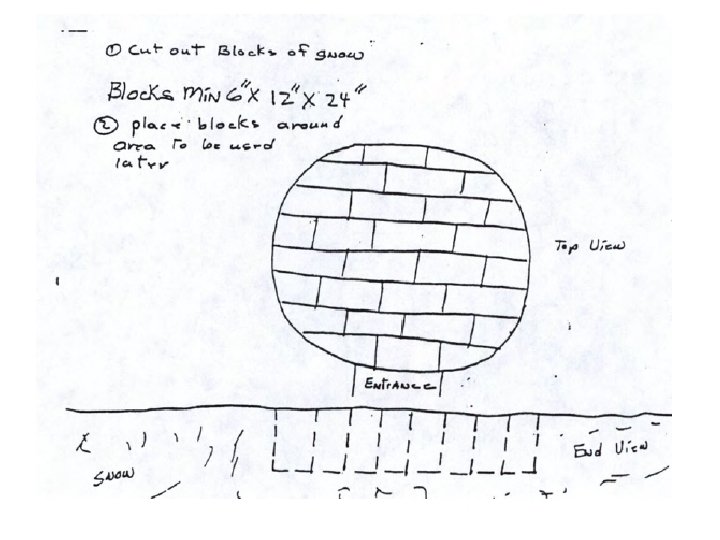 ① Cut out Blocks of snow
Blocks MiN 6" X 12" X 24"
② place blocks around
area to be used
later
Top View
ENTRANCE
End View
SNOW